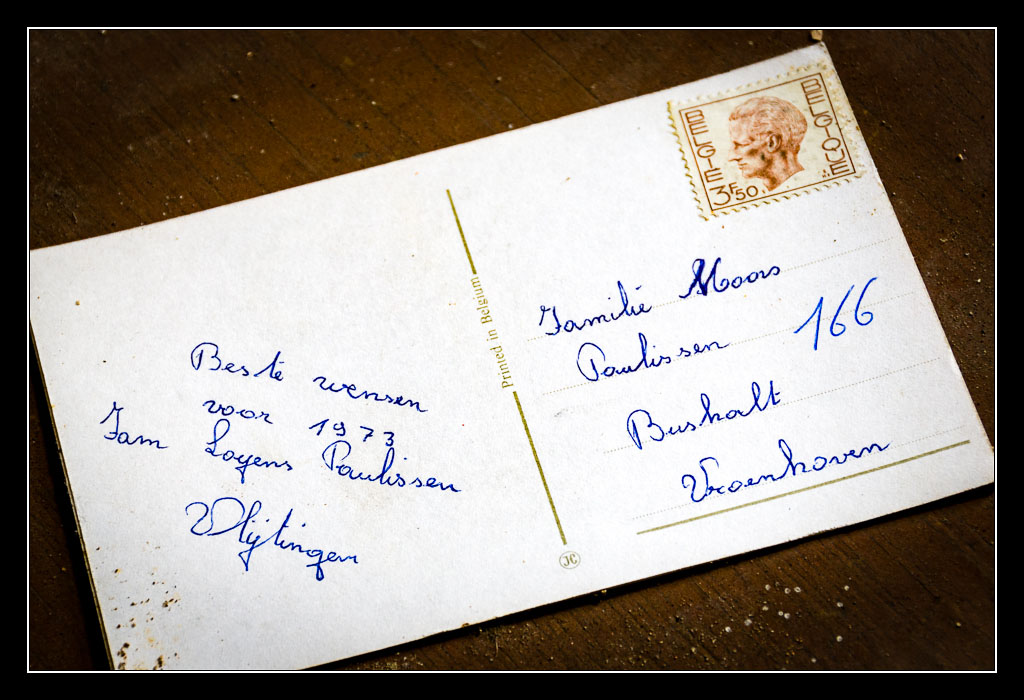 Beste wensen
voor 1973
Fam Loyens Paulissen
Vlijtingen
Printed in Belgium
JC
BELGIË
BELGIQUE
3F50
Familie Moors
Paulissen 166
Bushalt
Vroenhoven